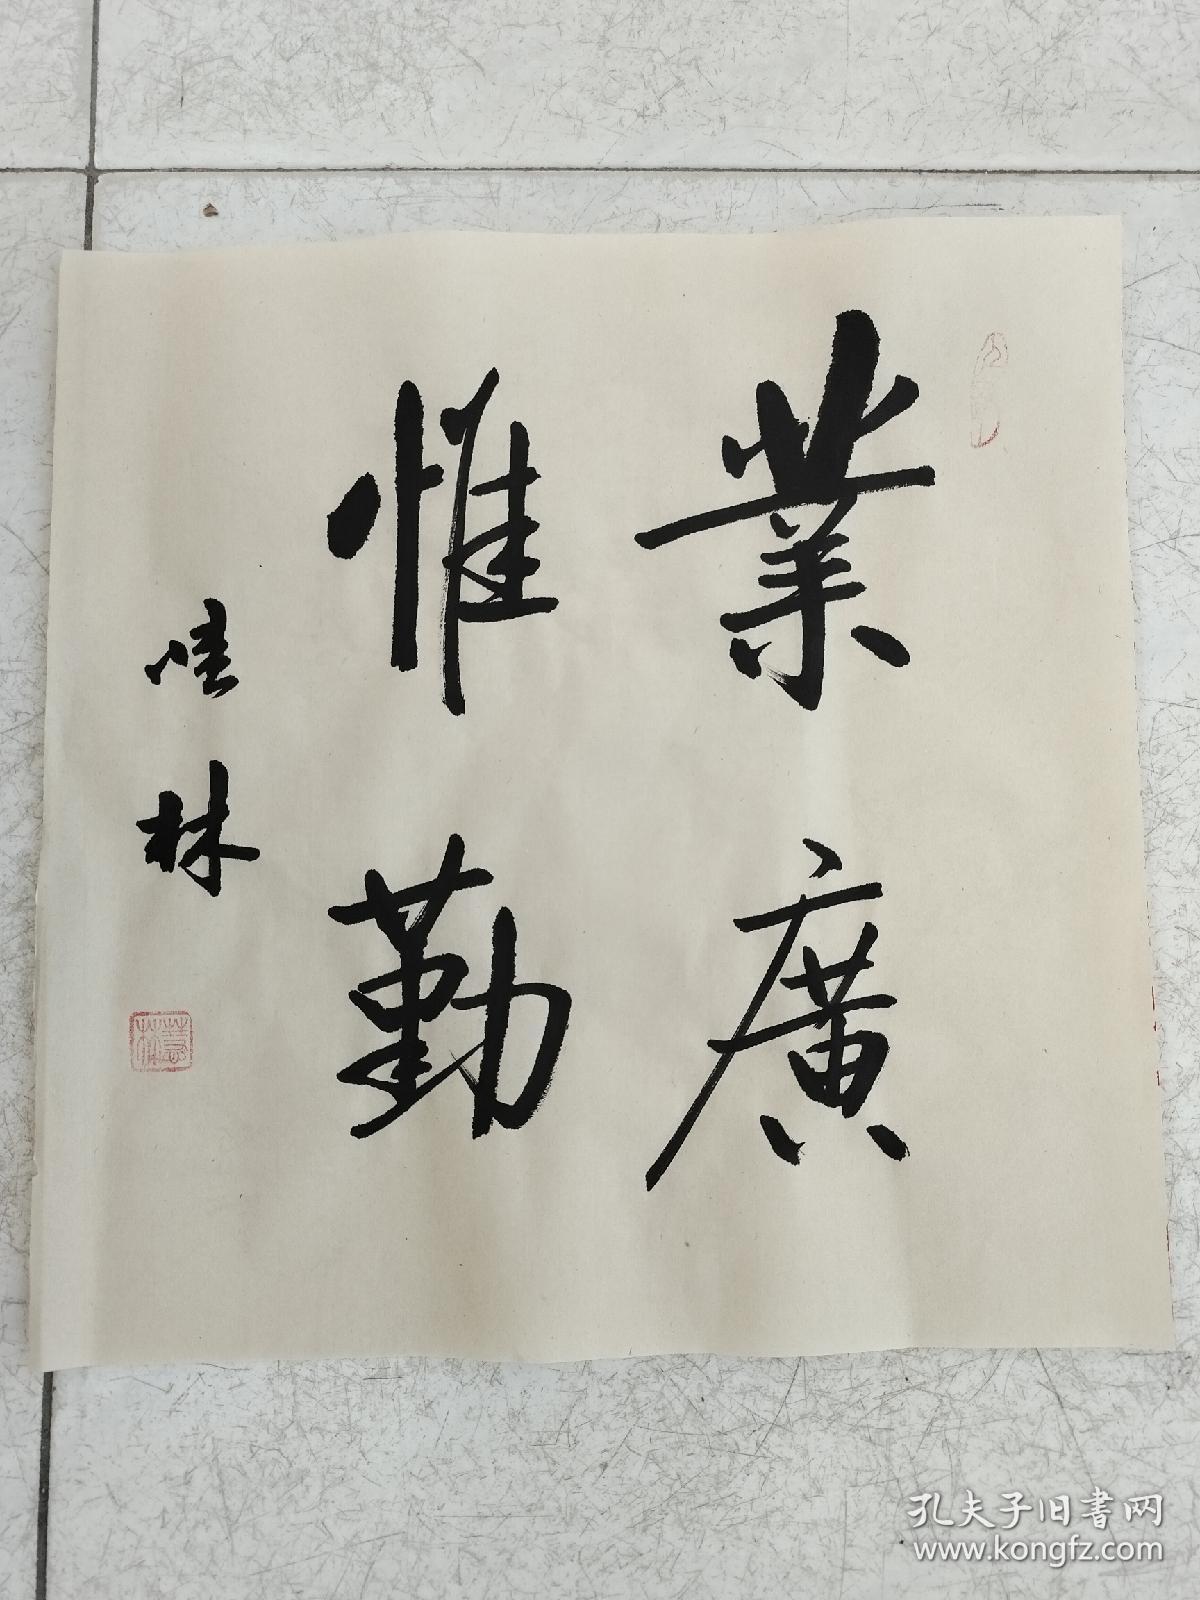 業廣
惟勤
林
孔夫子旧書网
www.kongfz.com